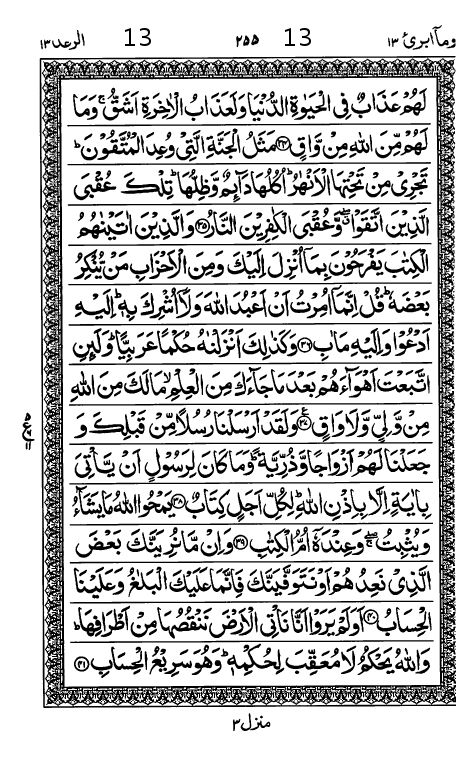 وما ابرئ ١٣ 13 ٢٥٥ 13 الرعد ١٣
لَهُمْ عَذَابٌ فِي الْحَيٰوةِ الدُّنْيَا وَلَعَذَابُ الْاٰخِرَةِ اَشَقُّ ۚ وَمَا
لَهُمْ مِّنَ اللّٰهِ مِنْ وَّاقٍ ﴿٣٤﴾ مَثَلُ الْجَنَّةِ الَّتِيْ وُعِدَ الْمُتَّقُوْنَ ؕ
تَجْرِيْ مِنْ تَحْتِهَا الْاَنْهٰرُ ؕ اُكُلُهَا دَآئِمٌ وَّظِلُّهَا ؕ تِلْكَ عُقْبَى
الَّذِيْنَ اتَّقَوْا ۖ وَّعُقْبَى الْكٰفِرِيْنَ النَّارُ ﴿٣٥﴾ وَالَّذِيْنَ اٰتَيْنٰهُمُ
الْكِتٰبَ يَفْرَحُوْنَ بِمَاۤ اُنْزِلَ اِلَيْكَ وَمِنَ الْاَحْزَابِ مَنْ يُّنْكِرُ
بَعْضَهٗ ؕ قُلْ اِنَّمَاۤ اُمِرْتُ اَنْ اَعْبُدَ اللّٰهَ وَلَاۤ اُشْرِكَ بِهٖ ؕ اِلَيْهِ
اَدْعُوْا وَاِلَيْهِ مَاٰبِ ﴿٣٦﴾ وَكَذٰلِكَ اَنْزَلْنٰهُ حُكْمًا عَرَبِيًّا ؕ وَلَئِنِ
اتَّبَعْتَ اَهْوَآءَهُمْ بَعْدَ مَا جَآءَكَ مِنَ الْعِلْمِ ۙ مَا لَكَ مِنَ اللّٰهِ
مِنْ وَّلِيٍّ وَّلَا وَاقٍ ﴿٣٧﴾ وَلَقَدْ اَرْسَلْنَا رُسُلًا مِّنْ قَبْلِكَ وَ
جَعَلْنَا لَهُمْ اَزْوَاجًا وَّذُرِّيَّةً ؕ وَمَا كَانَ لِرَسُوْلٍ اَنْ يَّاْتِيَ
بِاٰيَةٍ اِلَّا بِاِذْنِ اللّٰهِ ؕ لِكُلِّ اَجَلٍ كِتَابٌ ﴿٣٨﴾ يَمْحُوا اللّٰهُ مَا يَشَآءُ
وَيُثْبِتُ ۖ وَعِنْدَهٗۤ اُمُّ الْكِتٰبِ ﴿٣٩﴾ وَاِنْ مَّا نُرِيَنَّكَ بَعْضَ
الَّذِيْ نَعِدُهُمْ اَوْ نَتَوَفَّيَنَّكَ فَاِنَّمَا عَلَيْكَ الْبَلٰغُ وَعَلَيْنَا
الْحِسَابُ ﴿٤٠﴾ اَوَلَمْ يَرَوْا اَنَّا نَاْتِي الْاَرْضَ نَنْقُصُهَا مِنْ اَطْرَافِهَا ؕ
وَاللّٰهُ يَحْكُمُ لَا مُعَقِّبَ لِحُكْمِهٖ ؕ وَهُوَ سَرِيْعُ الْحِسَابِ ﴿٤١﴾
منزل ٣